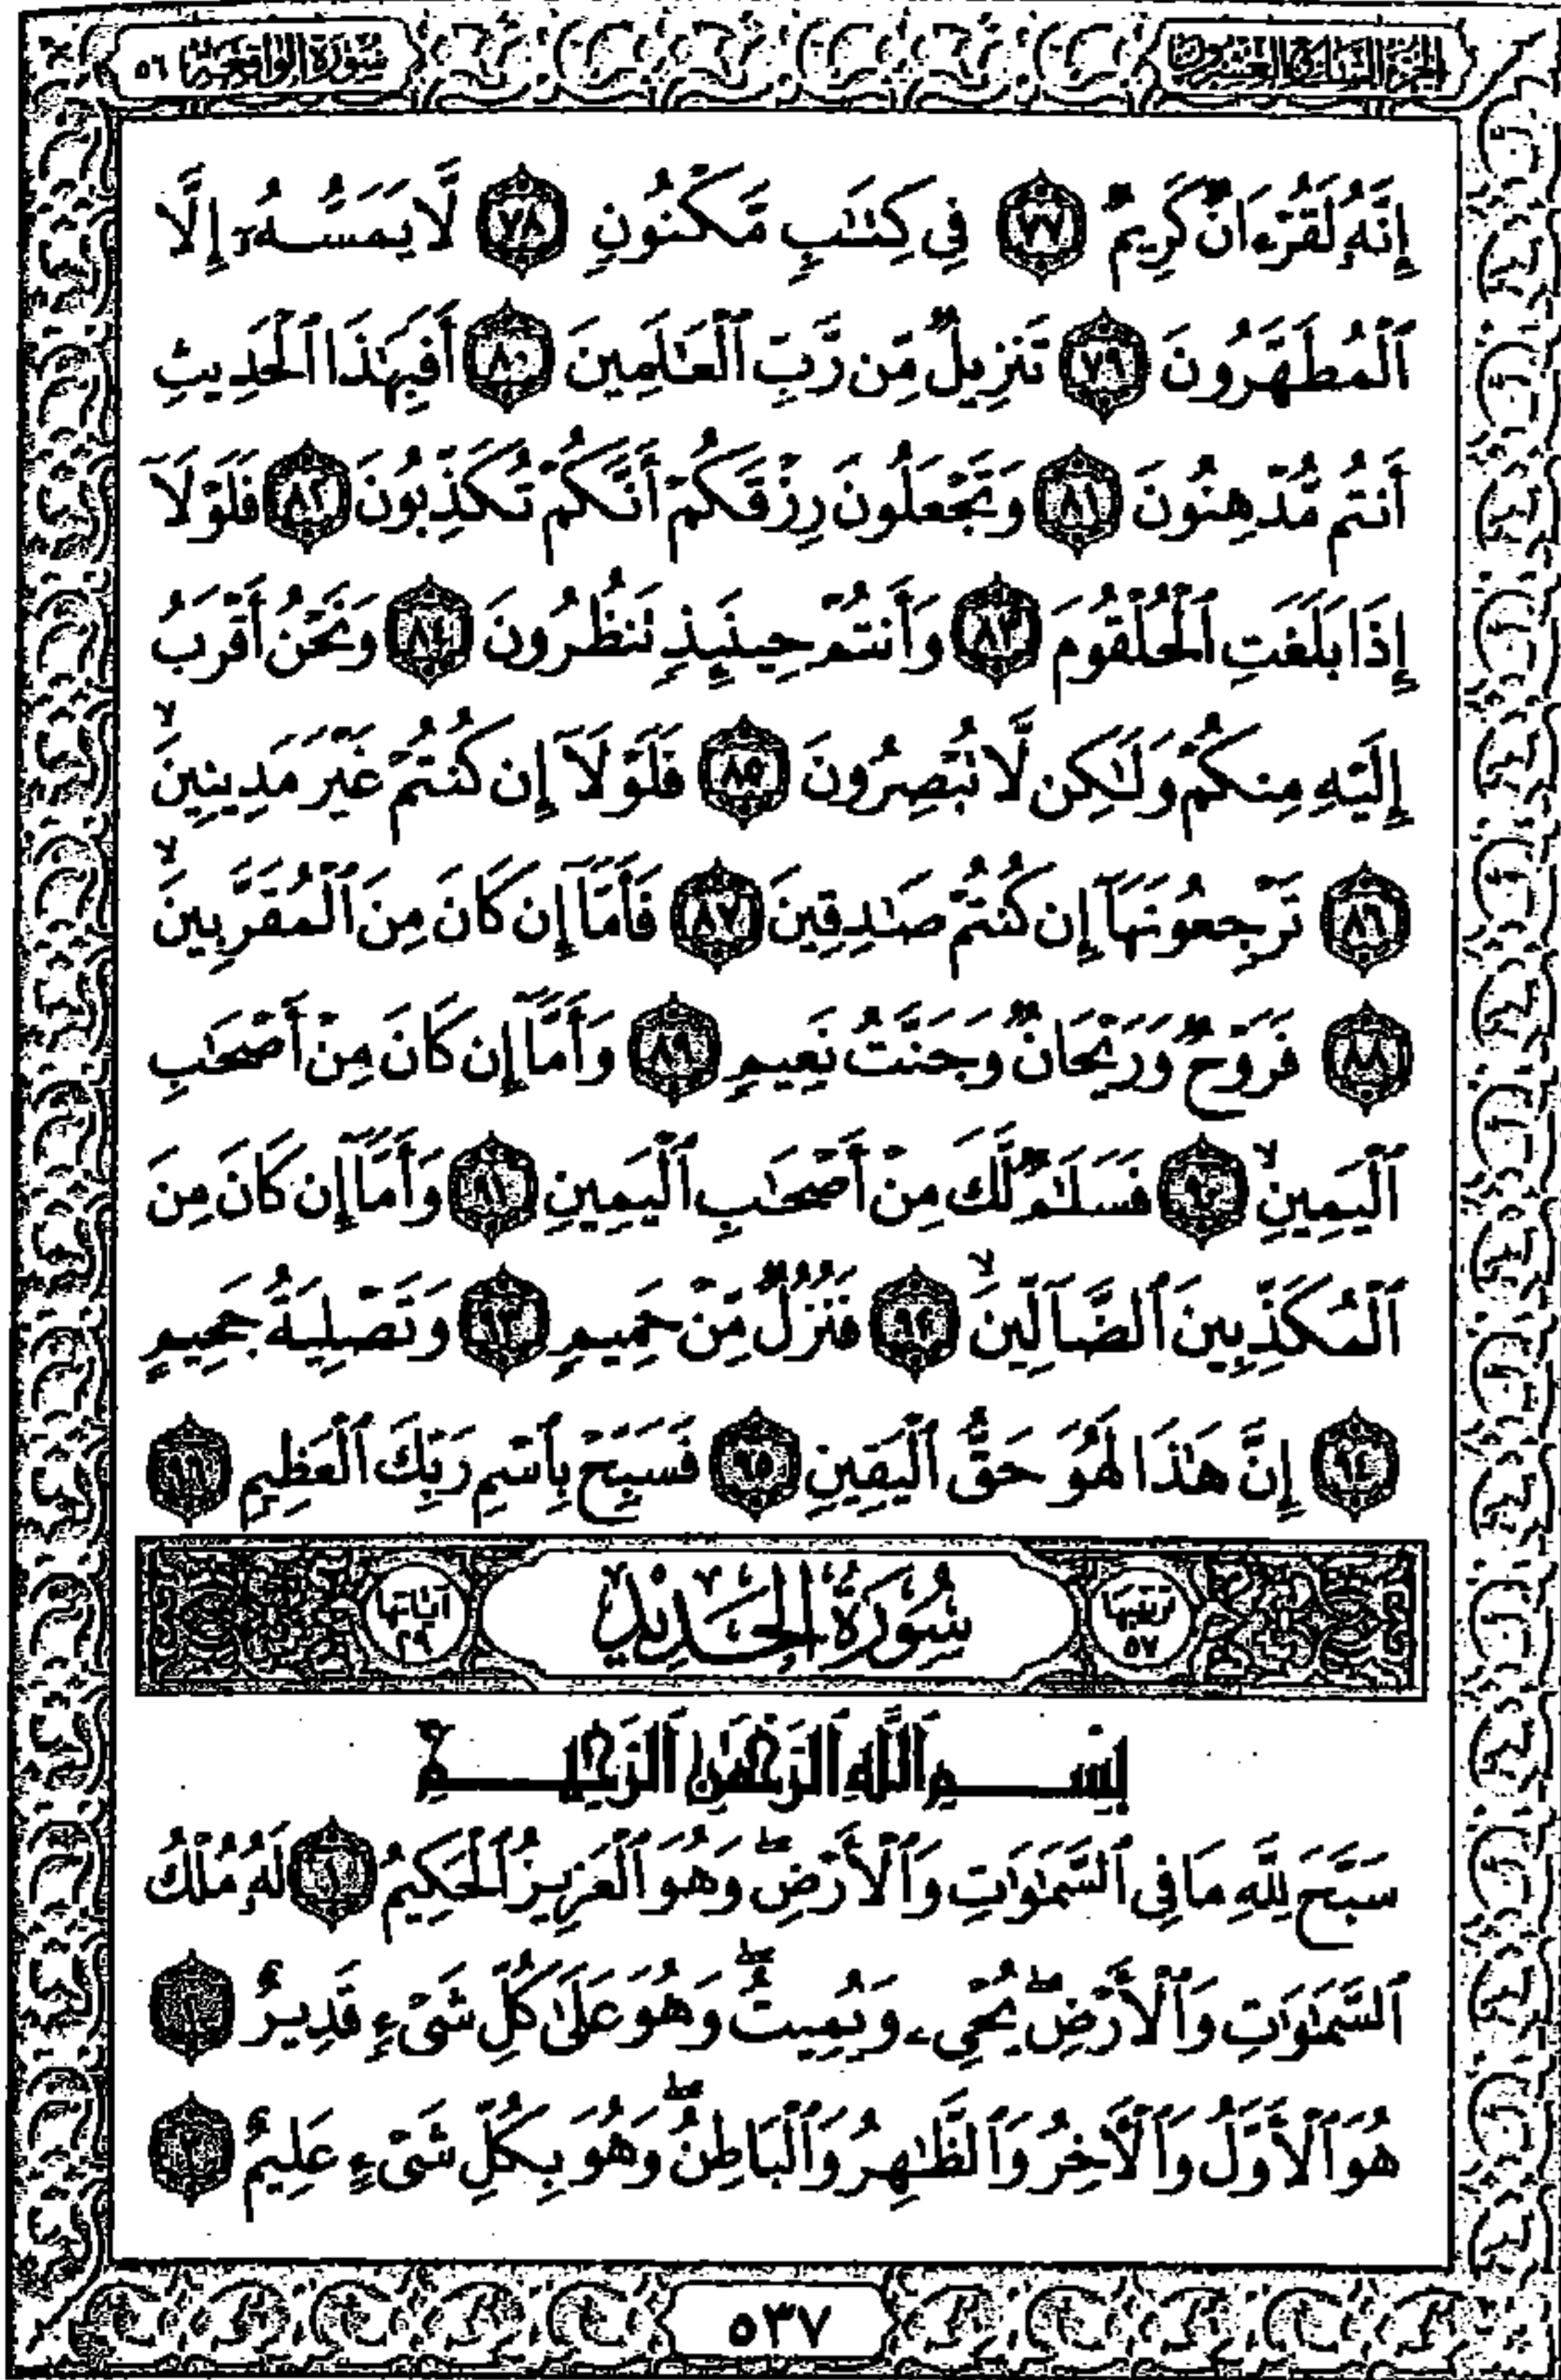 الجزء السابع والعشرون
سورة الواقعة ٥٦
إِنَّهُۥ لَقُرْءَانٌ كَرِيمٌ ٧٧ فِى كِتَٰبٍ مَّكْنُونٍ ٧٨ لَّا يَمَسُّهُۥٓ إِلَّا
ٱلْمُطَهَّرُونَ ٧٩ تَنزِيلٌ مِّن رَّبِّ ٱلْعَٰلَمِينَ ٨٠ أَفَبِهَٰذَا ٱلْحَدِيثِ
أَنتُم مُّدْهِنُونَ ٨١ وَتَجْعَلُونَ رِزْقَكُمْ أَنَّكُمْ تُكَذِّبُونَ ٨٢ فَلَوْلَآ
إِذَا بَلَغَتِ ٱلْحُلْقُومَ ٨٣ وَأَنتُمْ حِينَئِذٍ تَنظُرُونَ ٨٤ وَنَحْنُ أَقْرَبُ
إِلَيْهِ مِنكُمْ وَلَٰكِن لَّا تُبْصِرُونَ ٨٥ فَلَوْلَآ إِن كُنتُمْ غَيْرَ مَدِينِينَ ۙ
٨٦ تَرْجِعُونَهَآ إِن كُنتُمْ صَٰدِقِينَ ٨٧ فَأَمَّآ إِن كَانَ مِنَ ٱلْمُقَرَّبِينَ ۙ
٨٨ فَرَوْحٌ وَرَيْحَانٌ وَجَنَّتُ نَعِيمٍ ٨٩ وَأَمَّآ إِن كَانَ مِنْ أَصْحَٰبِ
ٱلْيَمِينِ ۙ ٩٠ فَسَلَٰمٌ لَّكَ مِنْ أَصْحَٰبِ ٱلْيَمِينِ ٩١ وَأَمَّآ إِن كَانَ مِنَ
ٱلْمُكَذِّبِينَ ٱلضَّآلِّينَ ۙ ٩٢ فَنُزُلٌ مِّنْ حَمِيمٍ ٩٣ وَتَصْلِيَةُ جَحِيمٍ
٩٤ إِنَّ هَٰذَا لَهُوَ حَقُّ ٱلْيَقِينِ ٩٥ فَسَبِّحْ بِٱسْمِ رَبِّكَ ٱلْعَظِيمِ ٩٦
ترتيبها ٥٧
سُورَةُ الحَدِيدِ
آياتها ٢٩
بِسْمِ ٱللَّهِ ٱلرَّحْمَٰنِ ٱلرَّحِيمِ
سَبَّحَ لِلَّهِ مَا فِى ٱلسَّمَٰوَٰتِ وَٱلْأَرْضِ ۖ وَهُوَ ٱلْعَزِيزُ ٱلْحَكِيمُ ١ لَهُۥ مُلْكُ
ٱلسَّمَٰوَٰتِ وَٱلْأَرْضِ ۖ يُحْىِۦ وَيُمِيتُ ۖ وَهُوَ عَلَىٰ كُلِّ شَىْءٍ قَدِيرٌ ٢
هُوَ ٱلْأَوَّلُ وَٱلْءَاخِرُ وَٱلظَّٰهِرُ وَٱلْبَاطِنُ ۖ وَهُوَ بِكُلِّ شَىْءٍ عَلِيمٌ ٣
٥٣٧